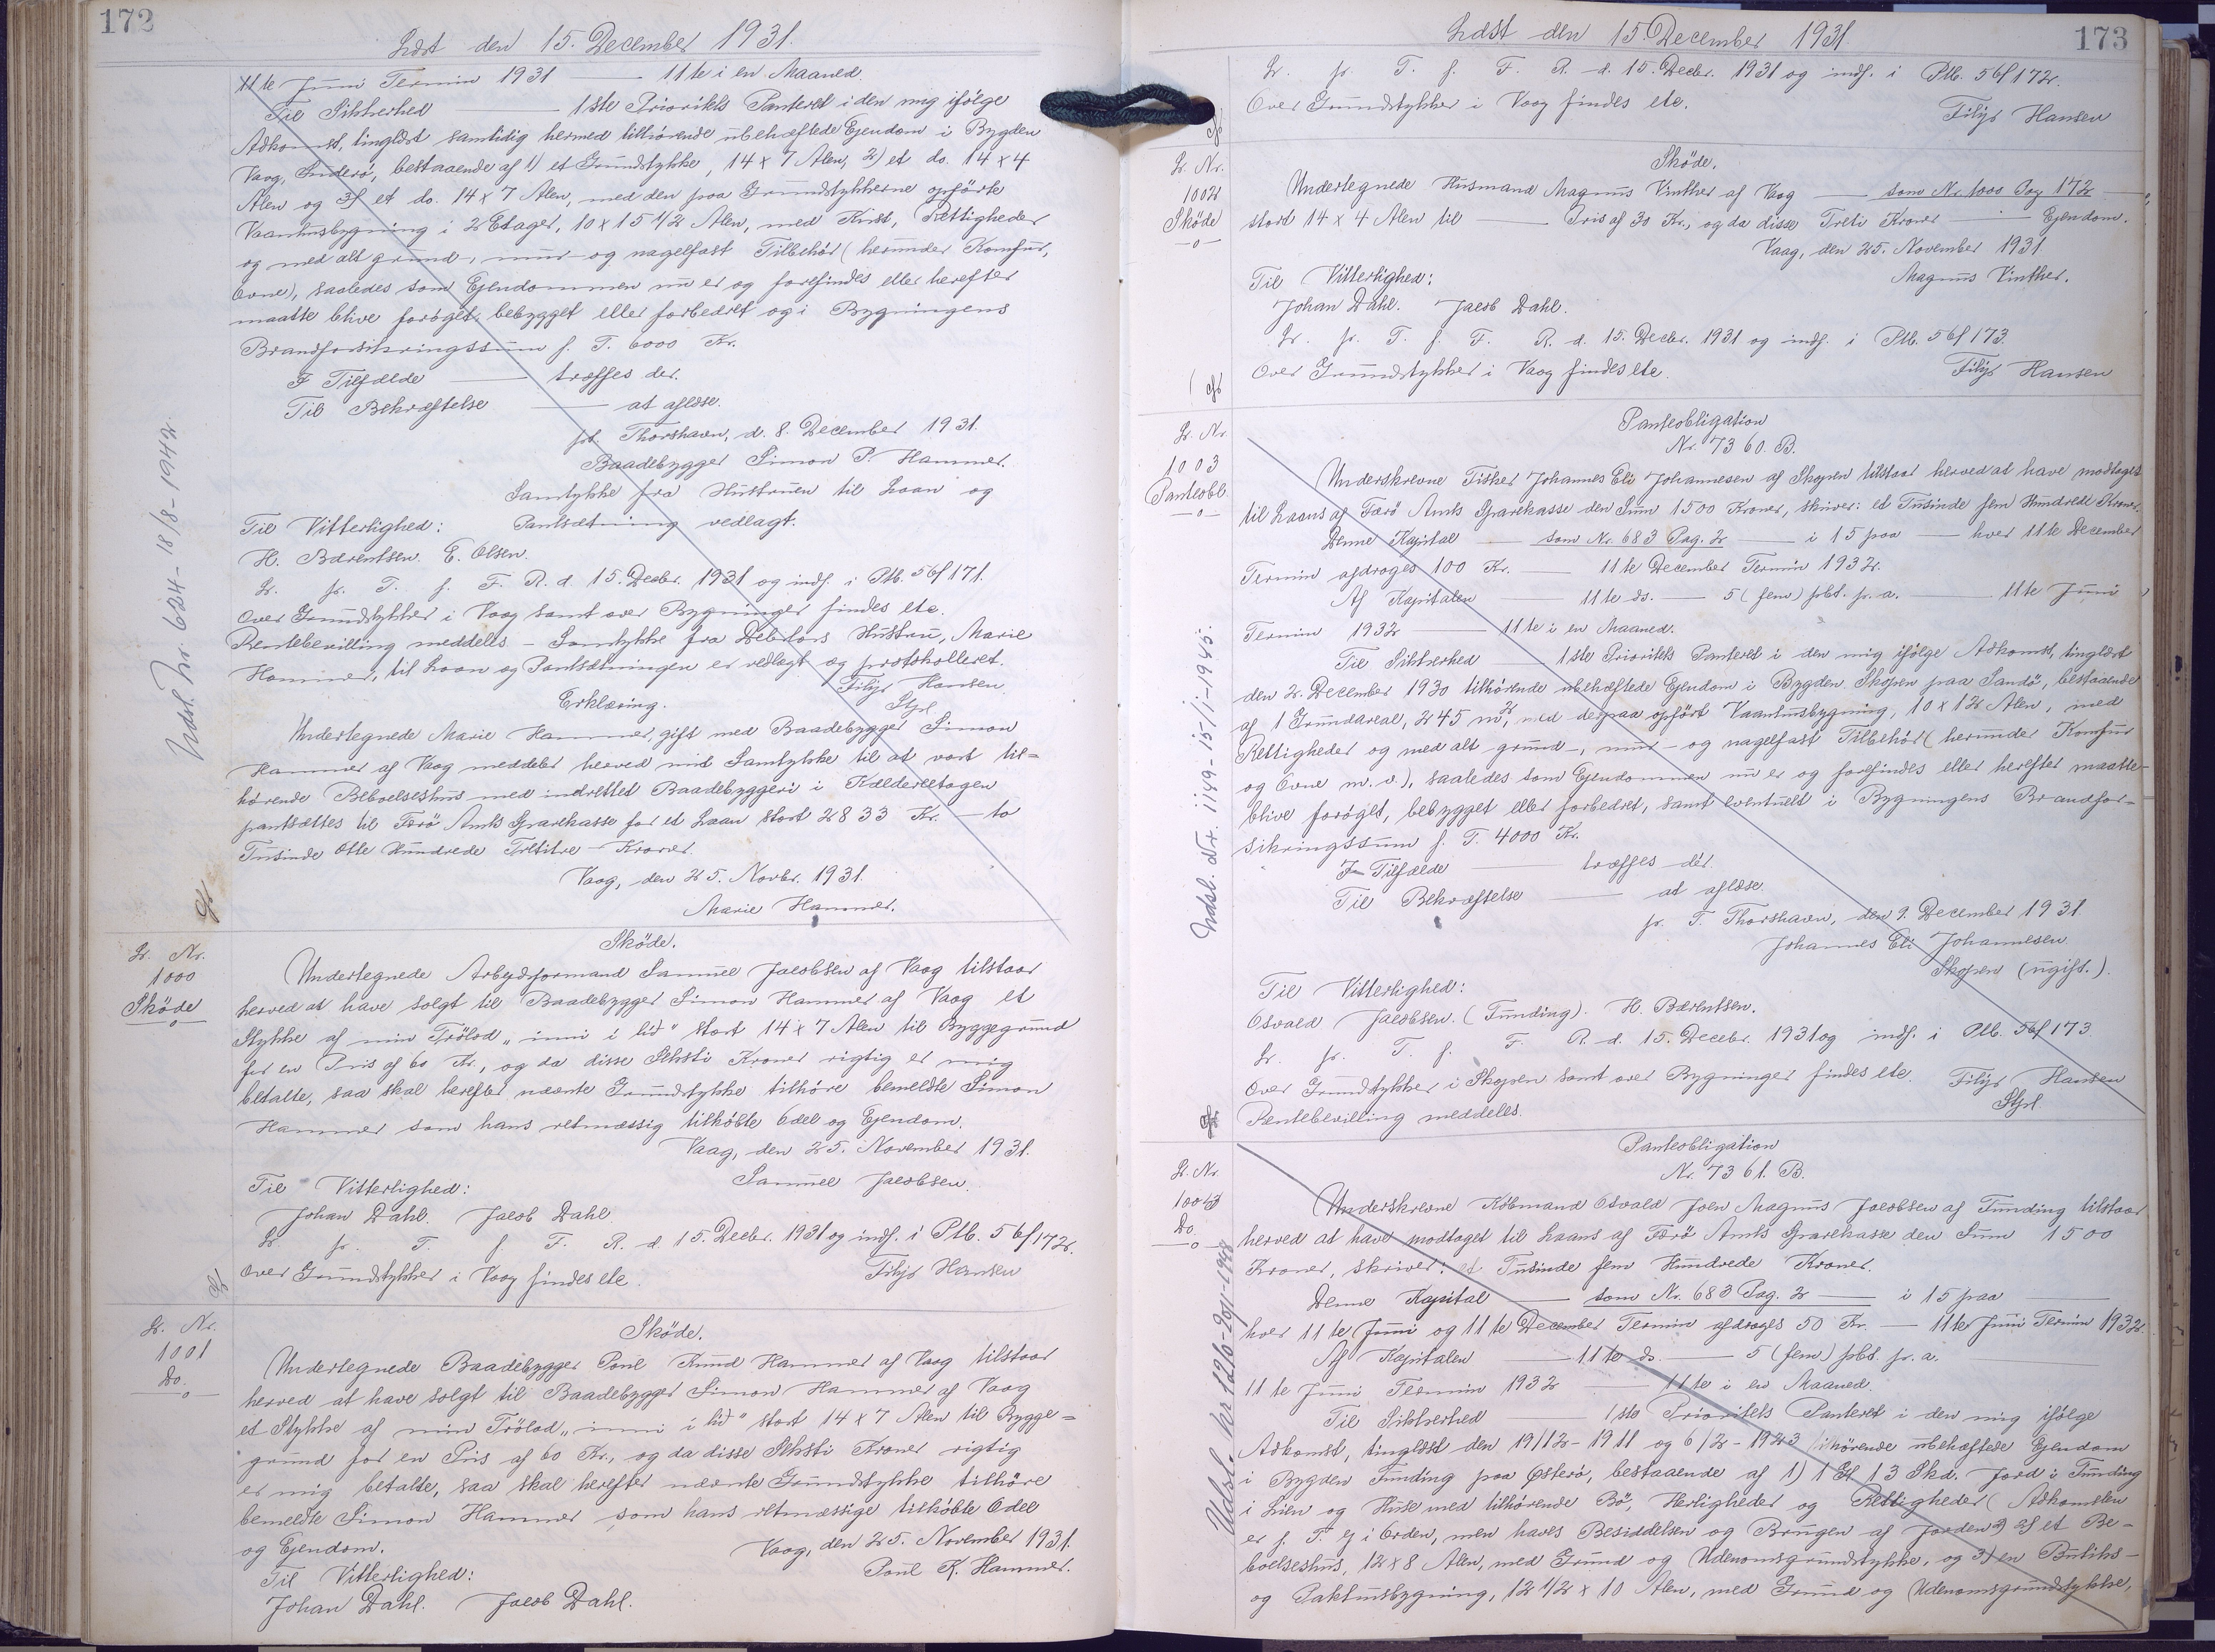 172
Læst den 15. December 1931.
11te Juni Termin 1931 — 11te i en Maaned.
Til Sikkerhed — 1ste Prioritets Panteret i den mig ifölge
Adkomst, tinglæst samtidig hermed tilhörende ubehæftede Ejendom i Bygden
Vaag, Suderö, bestaaende af 1) et Grundstykke, 14 x 7 Alen, 2) et do. 14 x 4
Alen og 3) et do. 14 x 7 Alen, med den paa Grundstykkerne opförte
Vaaningsbygning i 2 Etager, 10 x 15 1/2 Alen, med Kvist, Rettigheder
og med alt grund-, mur- og nagelfast Tilbehör (herunder Komfur,
Ovne), saaledes som Ejendommen nu er og forefindes eller herefter
maatte blive forøget, bebygget eller forbedret og i Bygningens
Brandforsikringssum f. T. 6000 Kr.
I Tilfælde — træffes der.
Til Bekræftelse — at aflæse.
pt. Thorshavn, d. 8. December 1931.
Baadebygger Simon P. Hammer.
Samtykke fra Hustruen til Laan og
Til Vitterlighed: Pantsætning vedlagt.
H. Bærentsen. E. Olsen.
L. p. T. f. F. R. d. 15. Decbr. 1931 og indf. i Ptb. 56f 171.
Over Grundstykker i Vaag samt over Bygninger findes etc.
Rentebevilling meddelts — Samtykke fra Debitors Hustru, Marie
Hammer, til Laan og Pantsætningen er vedlagt og protokolleret.
Filip Hansen
Stpl.
Erklæring.
Undertegnede Marie Hammer, gift med Baadebygger Simon
Hammer af Vaag meddeler herved mit Samtykke til at vort til=
hörende Beboelseshus med indrettet Baadebyggeri i Kælderetagen
pantsættes til Færö Amts Sparekasse for et Laan stort 2833 Kr. — to
Tusinde Otte Hundrede Tretitre — Kroner.
Vaag, den 25. Novbr. 1931.
Marie Hammer.
Indsl. Nr. 624 - 18/8 - 1942.
L. Nr.
1000
Sköde
Sköde.
Undertegnede Arbejdsformand Samuel Jacobsen af Vaag tilstaar
herved at have solgt til Baadebygger Simon Hammer af Vaag et
Stykke af min Trölod „inni i lid“ stort 14 x 7 Alen til Byggegrund
for en Pris af 60 Kr., og da disse Seksti Kroner rigtig er mig
betalte, saa skal herefter nævnte Grundstykke tilhöre bemeldte Simon
Hammer som hans retmæssig tilköbte Odel og Ejendom.
Vaag, den 25. November 1931.
Til Vitterlighed: Samuel Jacobsen.
Johan Dahl. Jacob Dahl
L. p. T. f. F. R. d. 15. Decbr. 1931 og indf. i Ptb. 56f 172.
Over Grundstykker i Vaag findes etc. Filip Hansen
L. Nr.
1001
Do.
Sköde.
Undertegnede Baadebygger Poul Knud Hammer af Vaag tilstaar
herved at have solgt til Baadebygger Simon Hammer af Vaag
et Stykke af min Trölod „inni i lid“ stort 14 x 7 Alen til Bygge=
grund for en Pris af 60 Kr., og da disse Seksti Kroner rigtig
er mig betalte, saa skal herefter nævnte Grundstykke tilhöre
bemeldte Simon Hammer som hans retmæssige tilköbte Odel
og Ejendom. Vaag, den 25. November 1931.
Til Vitterlighed: Poul K. Hammer.
Johan Dahl. Jacob Dahl.
173
Læst den 15. December 1931
L. p. T. f. F. R. d. 15. Decbr. 1931 og indf. i Ptb. 56f 172.
Over Grundstykker i Vaag findes etc.
Filip Hansen
L. Nr.
1002
Sköde
Sköde.
Undertegnede Husmand Magnus Vinther af Vaag — som Nr. 1000 Pag 172
stort 14 x 4 Alen til — Pris af 30 Kr., og da disse Treti Kroner — Ejendom.
Vaag, den 25. November 1931
Til Vitterlighed: Magnus Vinther.
Johan Dahl. Jacob Dahl.
L. p. T. f. F. R. d. 15. Decbr. 1931 og indf. i Ptb. 56f 173.
Over Grundstykker i Vaag findes etc. Filip Hansen
L. Nr.
1003
Panteobl.
Panteobligation
Nr. 7360. B.
Underskrevne Fisker Johannes Eli Johannesen af Skopen tilstaar herved at have modtaget
til Laans af Færö Amts Sparekasse den Sum 1500 Kroner, skriver: et Tusinde fem Hundrede Kroner.
Denne Kapital — som Nr. 683 Pag. 2 — i 15 paa — hver 11te December
Termin afdrages 100 Kr. — 11te December Termin 1932.
Af Kapitalen — 11te ds. — 5 (fem) pCt. p. a. — 11te Juni
Termin 1932 — 11te i en Maaned.
Til Sikkerhed — 1ste Prioritets Panteret i den mig ifölge Adkomst, tinglæst
den 2. December 1930 tilhörende ubehæftede Ejendom i Bygden Skopen paa Sandö, bestaaende
af 1 Grundareal, 245 m², med derpaa opfört Vaaningsbygning, 10 x 12 Alen, med
Rettigheder og med alt grund-, mur- og nagelfast Tilbehör (herunder Komfur
og Ovne m. v.), saaledes som Ejendommen nu er og forefindes eller herefter maatte
blive forøget, bebygget eller forbedret, samt eventuelt i Bygningens Brandfor=
sikringssum f. T. 4000 Kr.
I Tilfælde — træffes der.
Til Bekræftelse — at aflæse.
p. T. Thorshavn, den 9. December 1931
Johannes Eli Johannesen
Skopen (ugift.)
Til Vitterlighed:
Osvald Jacobsen. (Funding). H. Bærentsen.
L. p. T. f. F. R. d. 15. Decebr. 1931 og indf. i Ptb. 56f 173.
Over Grundstykker i Skopen samt over Bygninger findes etc. Filip Hansen
Rentebevilling meddeles. Stpl.
Indsl. Nr. 1149 - 15/1 - 1945.
L. Nr.
1003
Do.
Panteobligation
Nr. 7361. B.
Underskrevne Köbmand Osvald Joen Magnus Jacobsen af Funding tilstaar
herved at have modtaget til Laans af Færö Amts Sparekasse den Sum 1500
Kroner, skriver: et Tusinde fem Hundrede Kroner.
Denne Kapital — som Nr. 683 Pag. 2 — i 15 paa —
hver 11te Juni og 11te December Termin afdrages 50 Kr. — 11te Juni Termin 1932.
Af Kapitalen — 11te ds. — 5 (fem) pCt. p. a. —
11te Juni Termin 1932 — 11te i en Maaned.
Til Sikkerhed — 1ste Prioritets Panteret i den mig ifölge
Adkomst, tinglæst den 19/12 - 1911 og 6/2 - 1923 tilhörende ubehæftede Ejendom
i Bygden Funding paa Østerö, bestaaende af 1) 1 Gl 13 Skd. Jord i Funding
i Lien og Huse med tilhörende Bö, Herligheder og Rettigheder (Adkomsten
er f. T. ej i Orden, men haves Besiddelsen og Brugen af Jorden 2) af et Be-
boelseshus, 12 x 8 Alen, med Grund og Udenomsgrundstykke, og 3) en Butiks-
og Pakhusbygning, 12 1/2 x 10 Alen, med Grund og Udenomsgrundstykke,